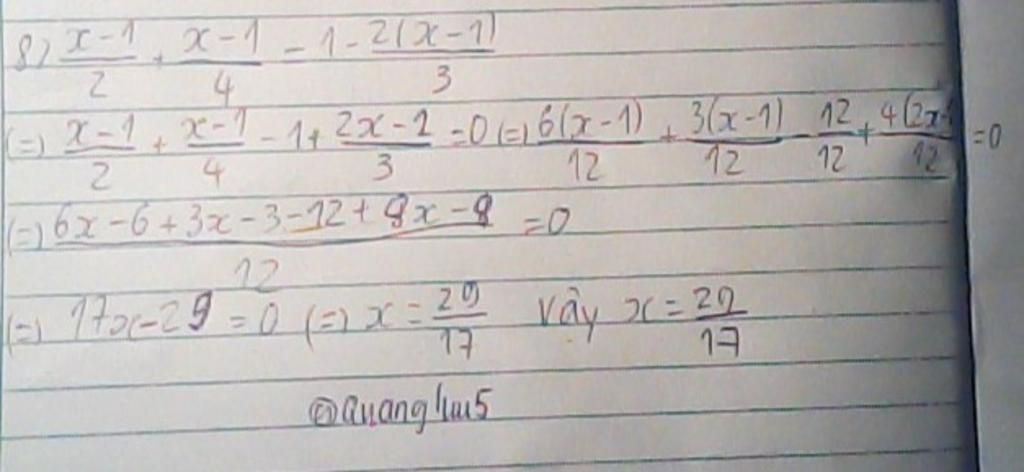 8) \frac{x-1}{2} + \frac{x-1}{4} = 1 - \frac{2(x-1)}{3}
(=) \frac{x-1}{2} + \frac{x-1}{4} - 1 + \frac{2x-2}{3} = 0 (=) \frac{6(x-1)}{12} + \frac{3(x-1)}{12} - \frac{12}{12} + \frac{4(2x-}{12} = 0
(=) \frac{6x-6+3x-3-12+8x-8}{12} = 0
(=) 17x-29 = 0 (=) x = \frac{29}{17} Vậy x = \frac{29}{17}